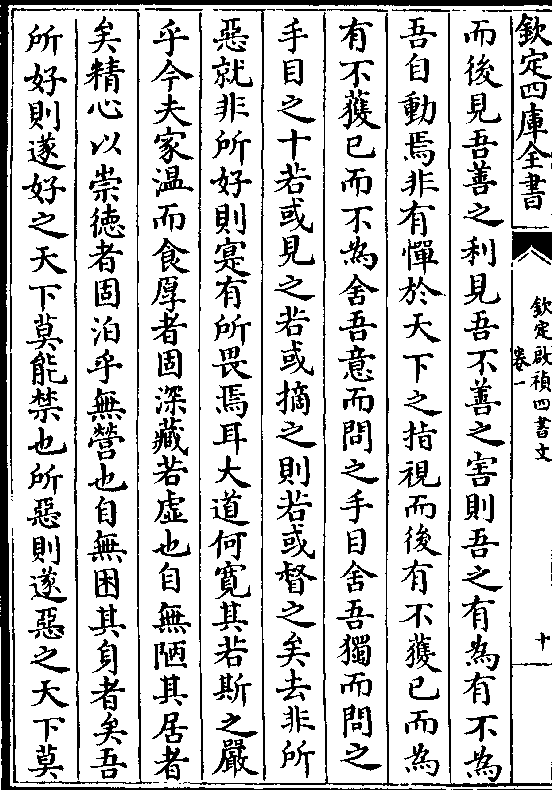 欽定四庫全書
欽定啟禎四書文
卷一
十
而後見吾善之利見吾不善之害則吾之有為有不為
吾自動焉非有憚於天下之指視而後有不獲已而為
有不獲已而不為舍吾意而問之手目舍吾獨而問之
手目之十若或見之若或摘之則若或督之矣去非所
惡就非所好則寔有所畏焉耳大道何寛其若斯之嚴
乎今夫家温而食厚者固深藏若虛也自無陋其居者
矣精心以崇徳者固泊乎無營也自無困其負者矣吾
所好則遂好之天下莫能禁也所惡則遂惡之天下莫